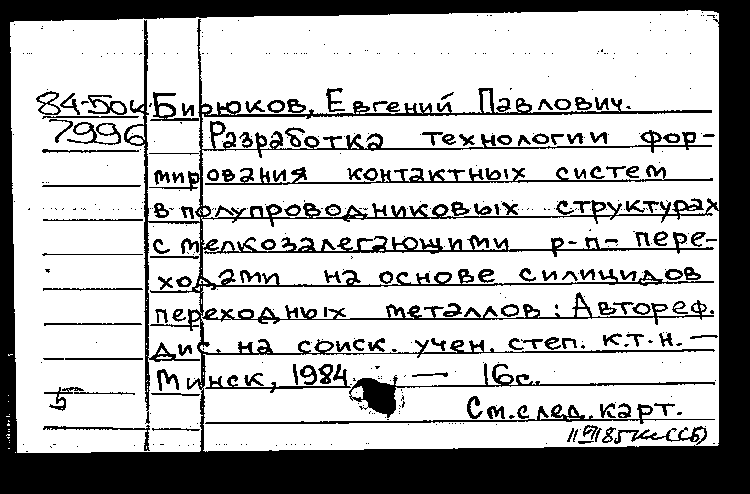 84-50к Бирюков, Евгений Павлович.
7996 Разработка технологии фор-
мирования контактных систем
в полупроводниковых структурах
с мелкозалегающими p-n- пере-
ходами на основе силицидов
переходных металлов: Автореф.
дис. на соиск. учен. степ. к.т.н. —
Минск, 1984. — 16с.
5 См. след. карт.